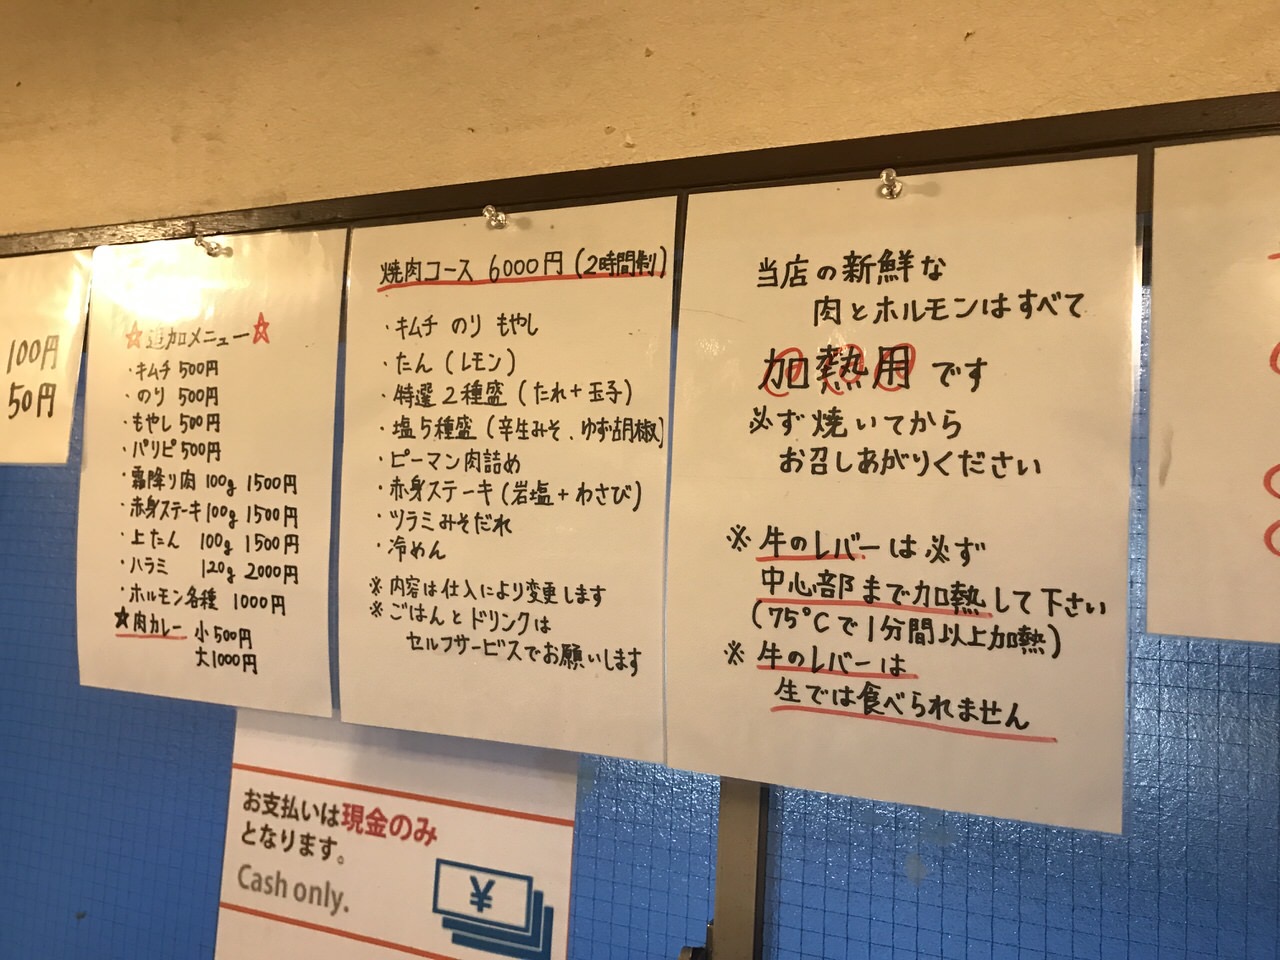 100円
50円
☆追加メニュー☆
・キムチ 500円
・のり 500円
・もやし 500円
・パリピ 500円
・霜降り肉 100g 1500円
・赤身ステーキ 100g 1500円
・上たん 100g 1500円
・ハラミ 120g 2000円
・ホルモン各種 1000円
★肉カレー 小500円
大1000円
焼肉コース 6000円(2時間制)
・キムチ のり もやし
・たん(レモン)
・特選2種盛(たれ+玉子)
・塩5種盛(辛生みそ、ゆず胡椒)
・ピーマン肉詰め
・赤身ステーキ(岩塩+わさび)
・ツラミみそだれ
・冷めん
※内容は仕入により変更します
※ごはんとドリンクは
セルフサービスでお願いします
当店の新鮮な
肉とホルモンはすべて
加熱用です
必ず焼いてから
お召しあがりください
※牛のレバーは必ず
中心部まで加熱して下さい
(75℃で1分間以上加熱)
※牛のレバーは
生では食べられません
お支払いは現金のみ
となります。
Cash only.
¥